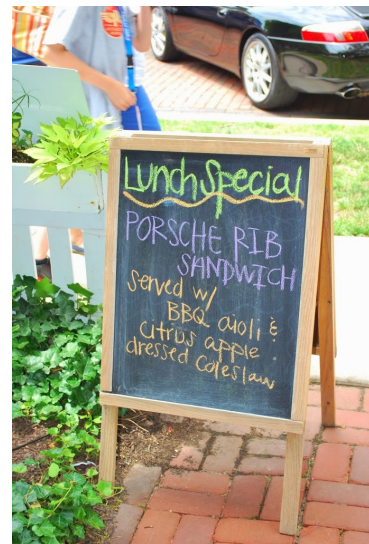 Lunch Special
PORSCHE RIB
SANDWICH
Served w/
BBQ aioli &
citrus apple
dressed Coleslaw